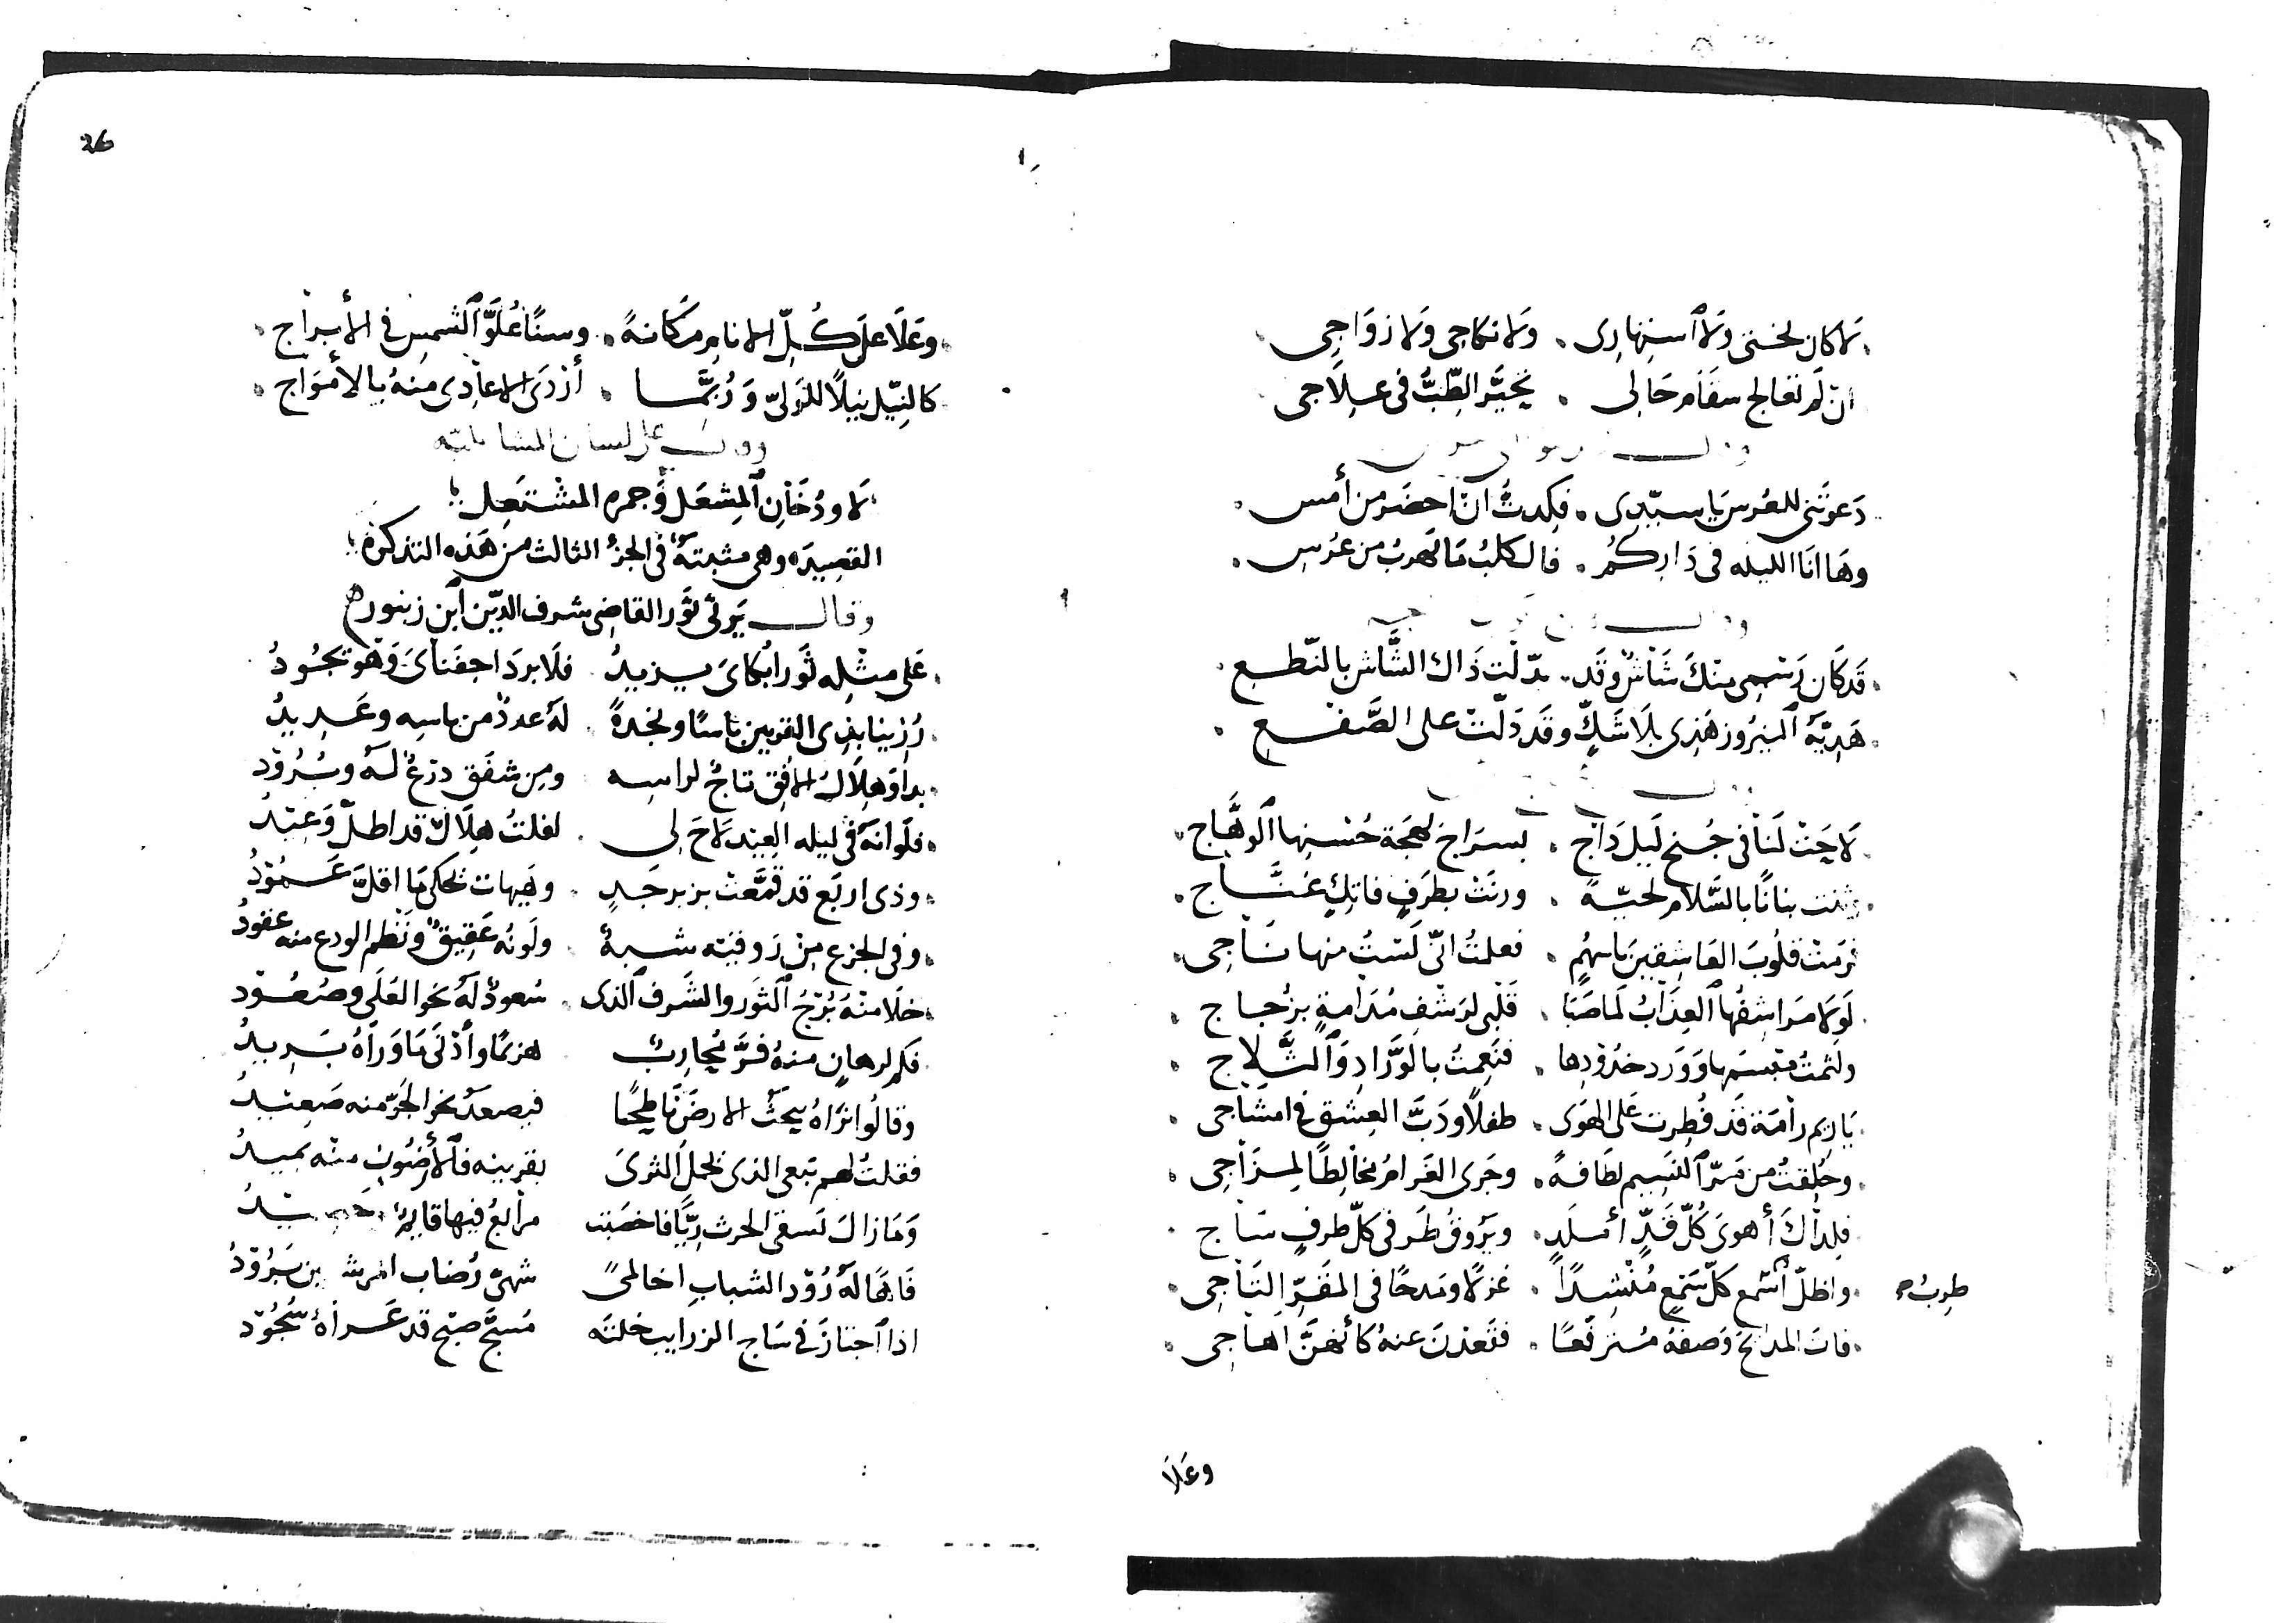 لا كان بختى ولا اسنهارى . ولا نكاجى ولا زواجى
ان لم تعالج سقام حالى . تحيّر الطِّبُّ فى علاجى
دَعوتَنى للعُرس يا سيّدى . فكدتُ ان احضر من أمس
وهَا انا الليله فى دَاركُم . فالكلبُ ما يهربُ من عرُس
قَد كَان رَسمِى منكَ شَاشٌ وقَد . بدّلت ذَاك الشَّاش بالنّطع
هَديّة النيرُوز هَذِى بلَا شَكٍّ وقَد دَلّت على الصَّفع
لَاحَت لَنا فى جُنح لَيل دَاج . بسرَاج بهجَة حُسنها الوهَّاج
ثنت بنانًا بالسَّلام تحيّةً . ورنَت بطَرفٍ فاتكٍ غنَّاج
فرمَت قلُوبَ العَاشقين باسهُمٍ . فعلمتُ انّى لَستُ منها نَاجى
لَولا مَراشفُها العِذَابُ لَما صَبَا . قَلبى لرَشف مُدَامةٍ بزُجاج
ولثمتُ مَبسمَها وَوَرد خدُودِها . فنَعمتُ بالوَرَّادِ وَالثَّلاج
يَا ريم رامَة قَد فُطِرت عَلى الهَوى . طفلًا ودَبَّ العِشق فى امشَاجى
وخُلقتُ من مَرّ النَّسِيم لطَافةً . وجَرى الغَرامُ مخَالِطًا لمِزَاجى
فلِذاكَ أهوى كُلّ قَدٍّ أملَدٍ . ويَرُوقُ طَرفى كلّ طرفٍ سَاج
واظلّ اسمع كلّ سَمعٍ مُنشِدًا . غزلًا ومَدحًا فى المقَرِّ التَاجى
طرب
فات المدَائحَ وَصفهُ مُترفّعًا . فتَعدنَ عنهُ كأنّهنَّ اهَاجى
وعَلَا
26
وعَلَا علَى كُلّ الانام مكَانةً . وسنًا عُلوَّ الشمس فى الأبراج
كالنِّيل نيلًا للوَلىّ وَرُبّمَا . أزدَى الاعَادِى منهُ بالأمواج
وقال على لسان المشاعلية
لَا ودُخَانِ المِشعَل وَجمره المشتَعِل
القصِيدَه وهى مثبتة فى الجزء الثالث من هَذه التذكرة
وقال يَرثى ثَور القاضى شرف الدّين ابن زنبور
عَلى مثِله ثَورًا بُكاىَ يزيدُ . فلَا بردَ اجفَناىَ وَهو تجُودُ
رُزينا بذى القرنين باسًا ونجدةً . لهُ عددٌ من باسه وعَديدُ
بدا وَهلَالُ الافق تاجٌ لراسه . ومِن شفَق درعٌ لهُ وبُرُودُ
فلَو انهُ فى ليله العِيد لَاحَ لى . لقلتُ هِلَالٌ قد اطلّ وَعِيدُ
وذى اربَع قد قُمِّعت بزبرجَدٍ . وهَيهات تحكى مَا اقلَّ عَمُودُ
وفى الجزع من رَوقيه شبهٌ . ولَونُه عَقِيقٌ ونَظم الودع منه عقُودُ
خلَا منهُ بُرجُ الثَور والشَرف الذى . سُعودٌ لهُ نحو العُلَى وصُعُود
فكم لرهانٍ منهُ فرَّ مُحاربٌ . هزيمًا وأدنَى مَا وَراهُ بَرِيدُ
وقالُوا تَراهُ يبحثُ الارضَ نَاطِحًا . فيصعدُ نحو الجَوّ منه صَعِيدُ
فقلتُ لهم تبغى الذى يحملُ الثرى . بقرنيه فالأرضُون منه تميدُ
وَمَا زالَ يَسقى الحرث رِيًّا فاخصَبت . مرابعُ فيها قايمٌ وحصيدُ
شهىّ رُضاب المرشفين بَرُودُ
اذا اجتازَ فى سَاج الزرابيب خلتَه . مُسجَّ صبح قد عَراهُ سُجُودُ